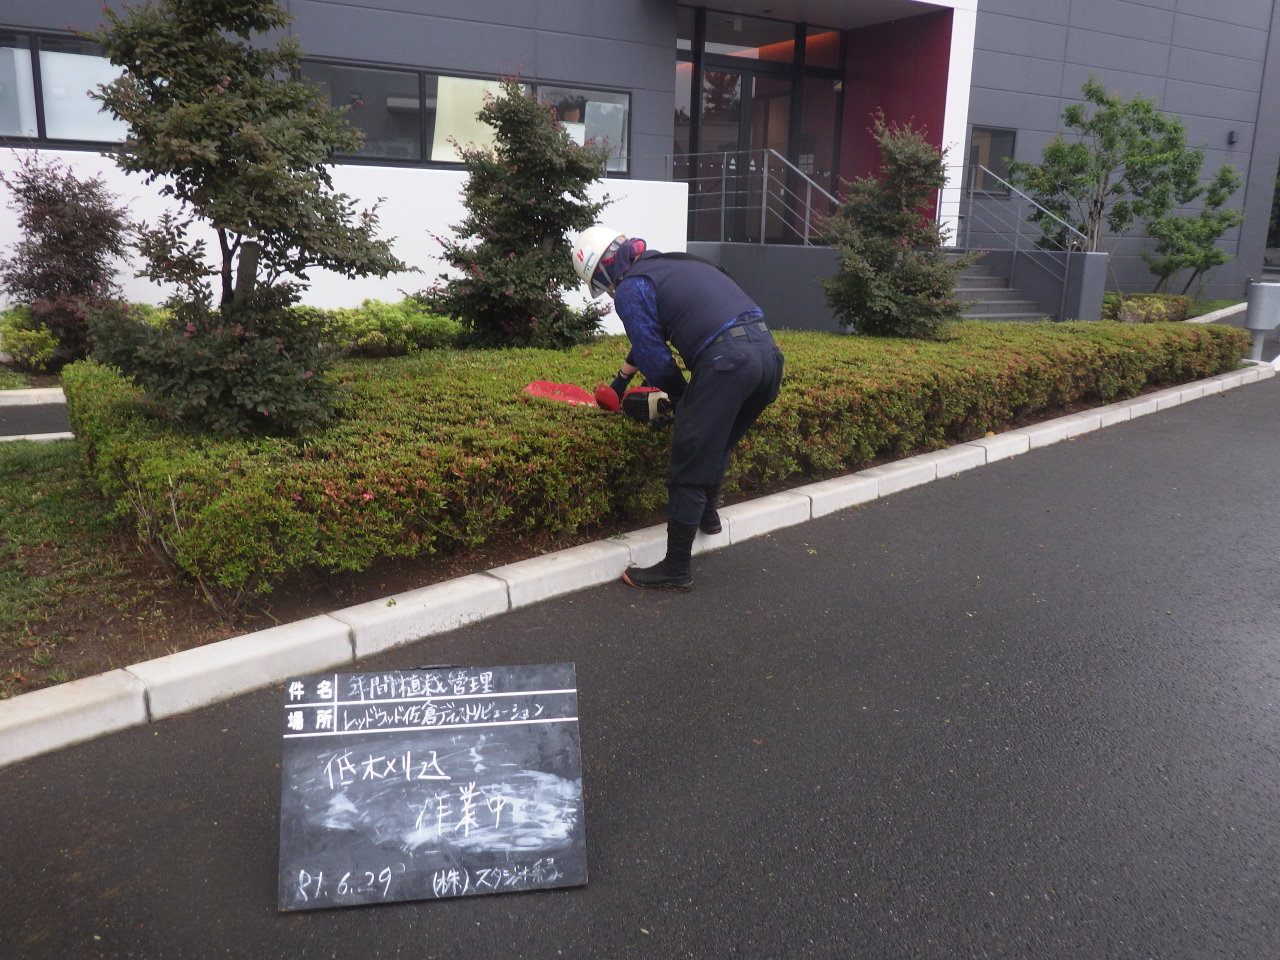 件名 年間植栽管理
場所 レッドウッド佐倉ディストリビューション
低木刈込
作業中
R1.6.29 (株)スタジオ